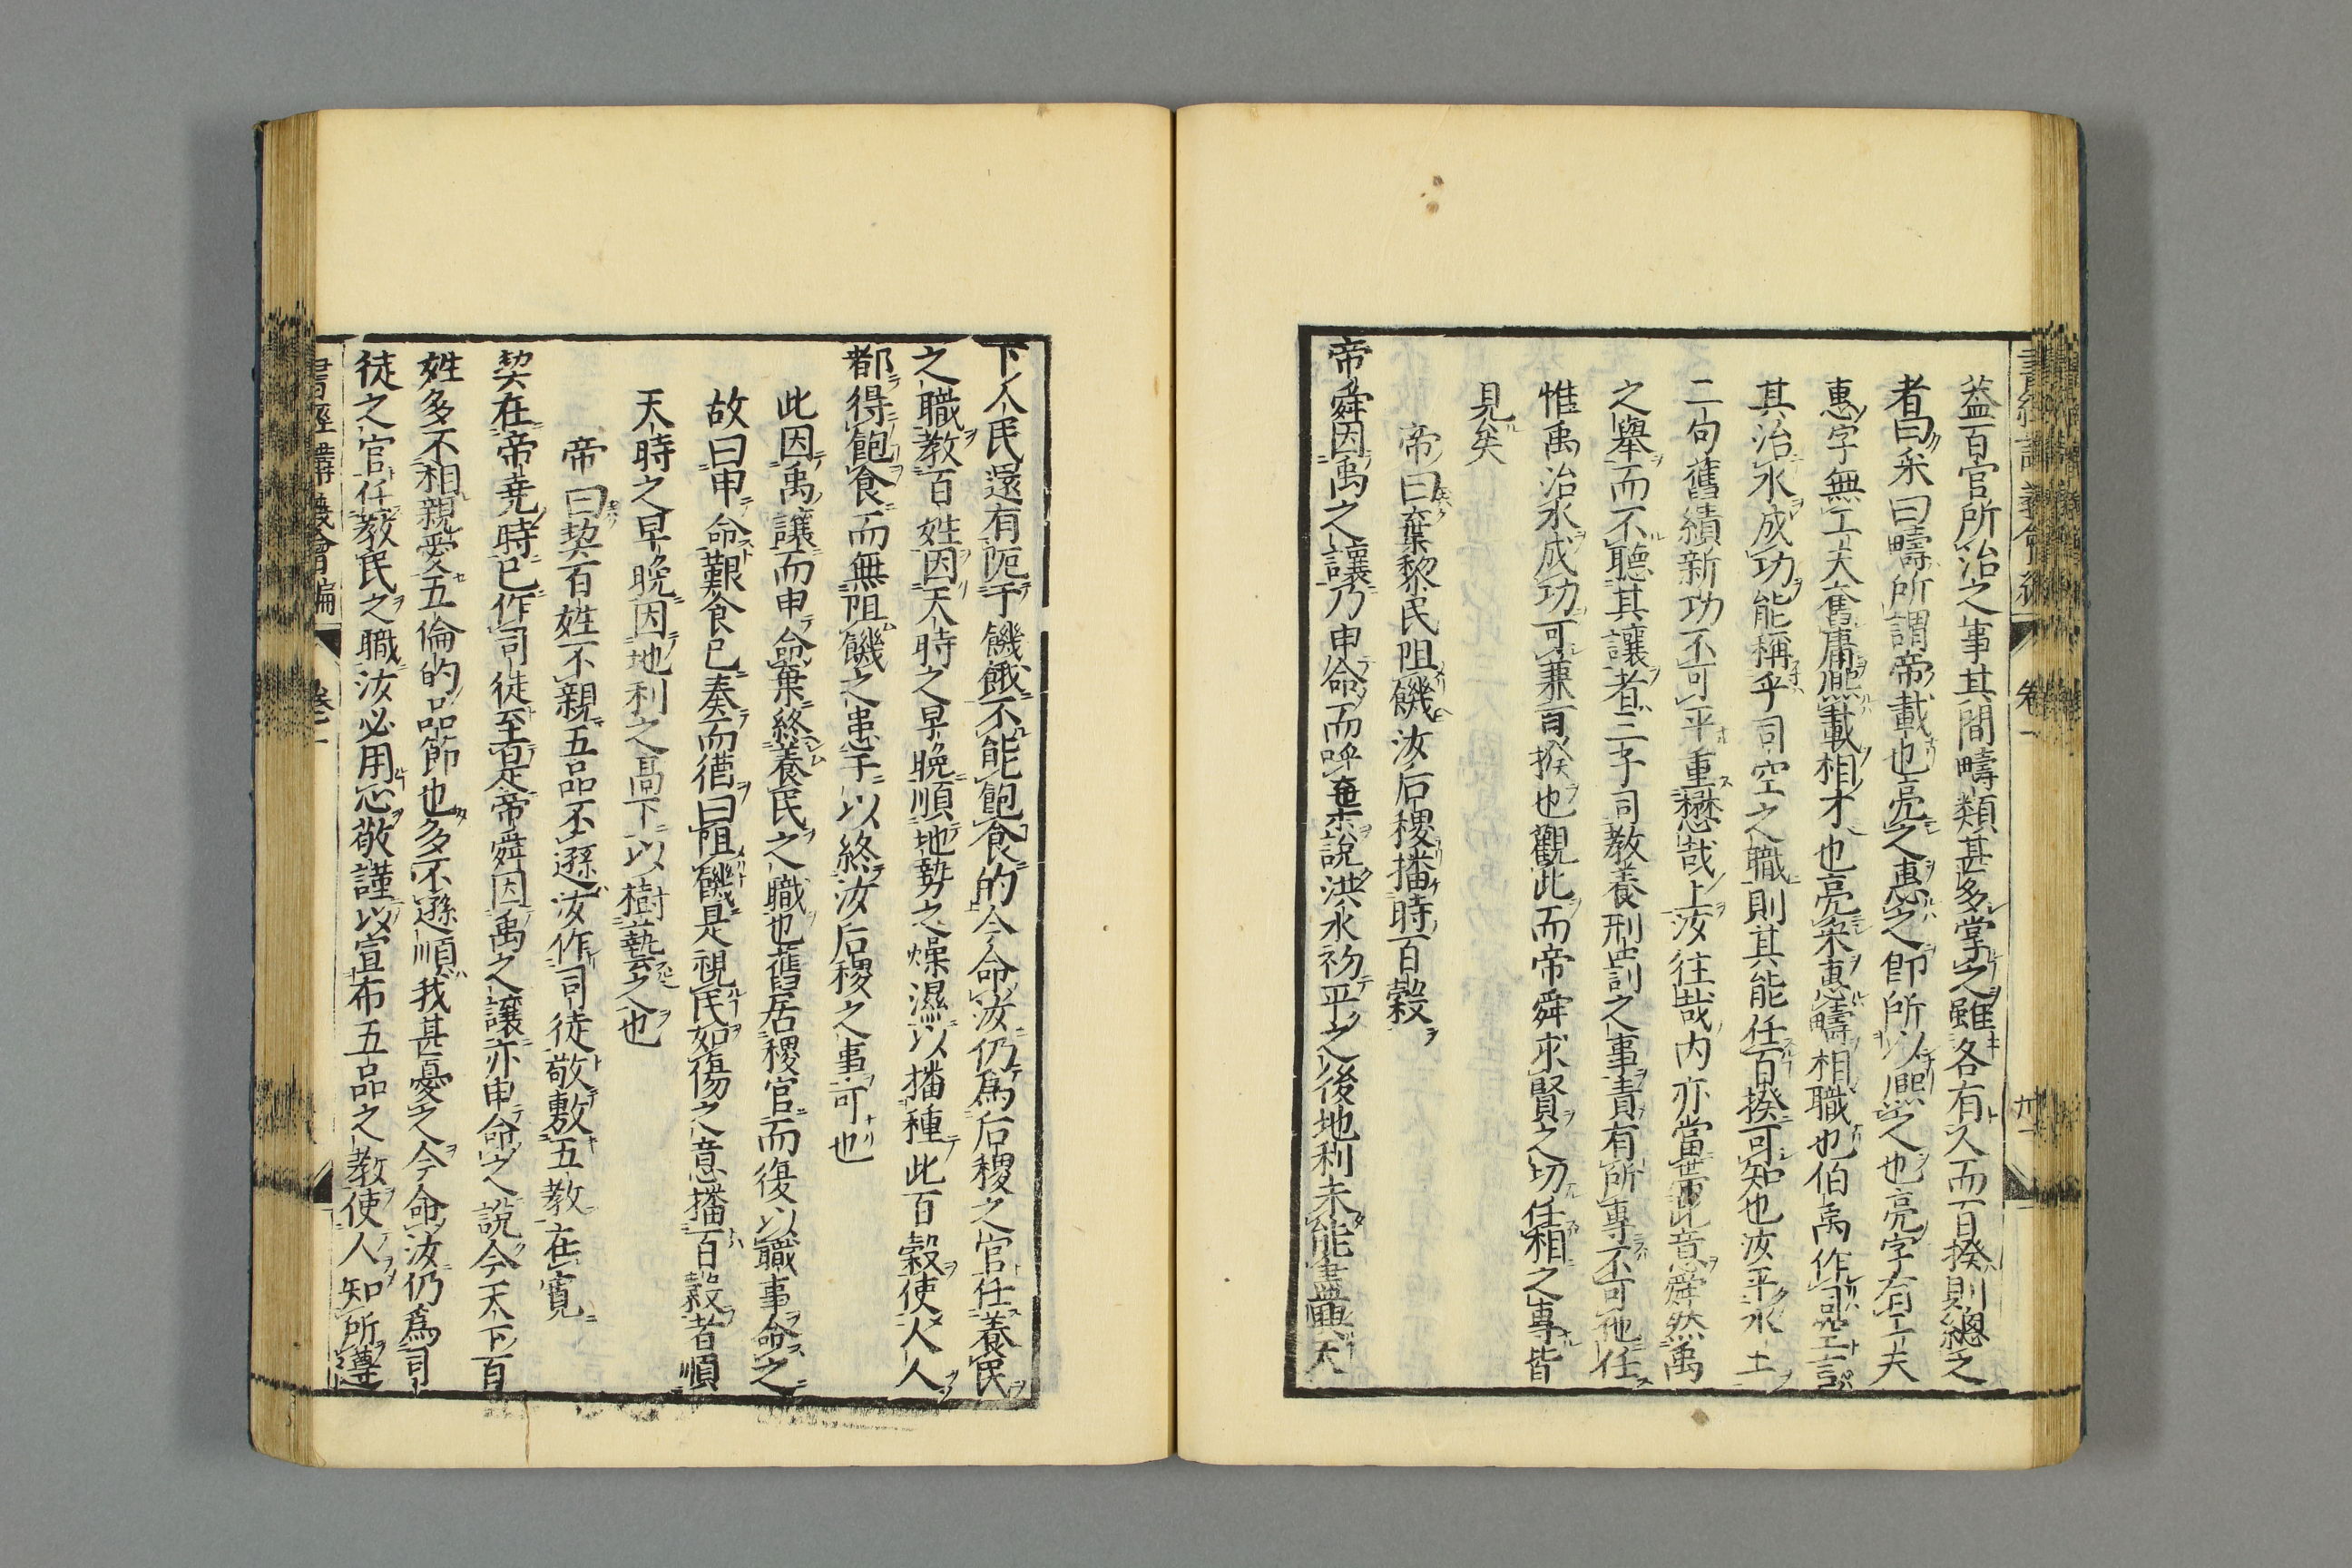 蓋百官所治之事其間疇類甚多掌之雖各有人而百揆則總之
者曰采曰疇所謂帝載也亮之惠之即所以熈之也亮字有工夫
惠字無工夫奮庸熈載相才也亮采惠疇相職也伯禹作司空言
其治水成功能稱乎司空之職則其能任百揆可知也汝平水土
二句舊績新功不可平重懋哉上汝往哉内亦當無此意舜然禹
之舉而不聽其讓者三子司教養刑罰之事責有所專不可他任
惟禹治水成功可兼百揆也觀此而帝舜求賢之切任相之專皆
見矣
帝曰棄黎民阻饑汝后稷播時百穀
帝舜因禹之讓乃申命而呼棄說洪水初平之後地利未能盡興天
下人民還有阨于饑餓不能飽食的今命汝仍爲后稷之官任養民
之職教百姓因天時之早晩順地勢之燥濕以播種此百穀使人人
都得飽食而無阻饑之患于以終汝后稷之事可也
此因禹讓而申命棄終養民之職也舊居稷官而復以職事命之
故曰申命艱食已奏而猶曰阻饑是視民如傷之意播百穀者順
天時之早晩因地利之高下以樹藝之也
帝曰契百姓不親五品不遜汝作司徒敬敷五教在寛
契在帝堯時已作司徒至是帝舜因禹之讓亦申命之說今天下百
姓多不相親愛五倫的品節也多不遜順我甚憂之今命汝仍爲司
徒之官任教民之職汝必用心敬謹以宣布五品之教使人知所遵
書經講義會編
卷一